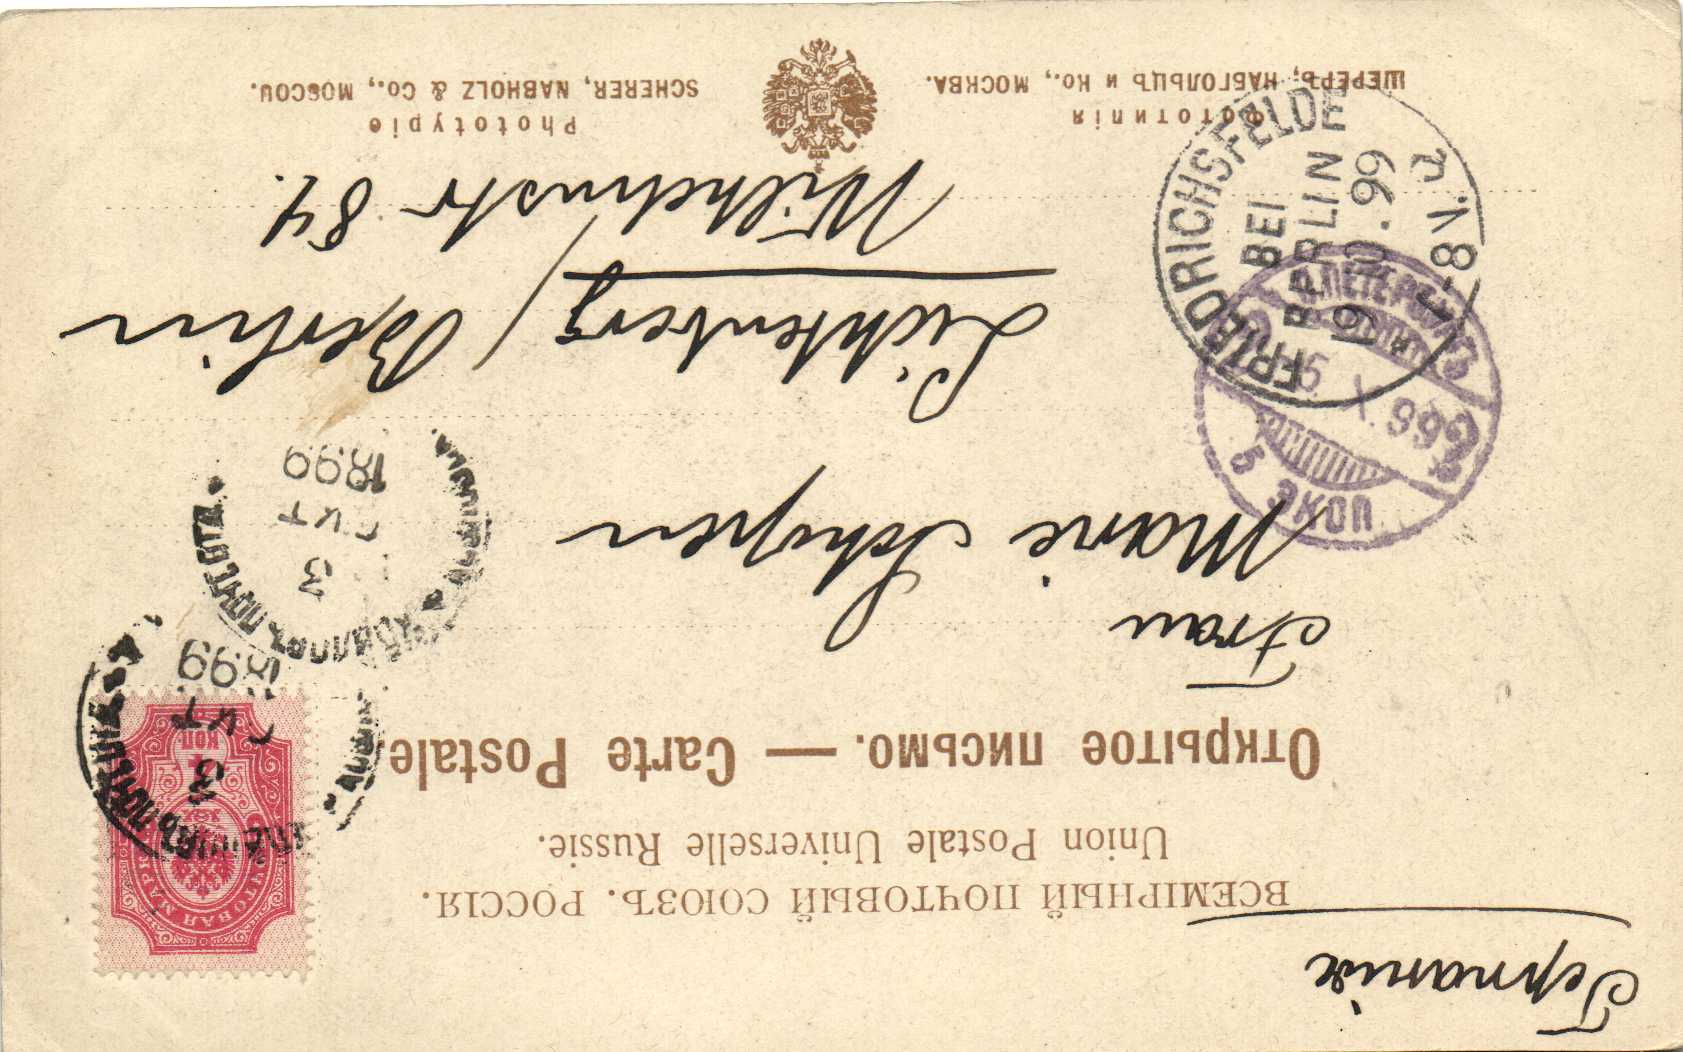 Германія
ВСЕМІРНЫЙ ПОЧТОВЫЙ СОЮЗЪ. РОССІЯ.
Union Postale Universelle Russie.
Открытое письмо. — Carte Postale.
Frau
Marie Schoper
Lichtenberg / Berlin
Wilhelmstr 84.
Фототипія
ШЕРЕРЪ, НАБГОЛЬЦЪ и Ко., МОСКВА.
Phototypie
SCHERER, NABHOLZ & Co., MOSCOU.
ПОЧТОВАЯ МАРКА
КОП
3
ОКТ
1899
3
ОКТ
1899
С.ПЕТЕРБУРГЪ
5 X 99
5 ЭКСП
FRIEDRICHSFELDE
BEI
BERLIN
99
7-8 V.